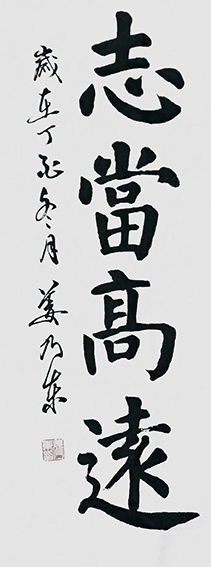 志當高遠
歲在丁亥冬月姜乃東